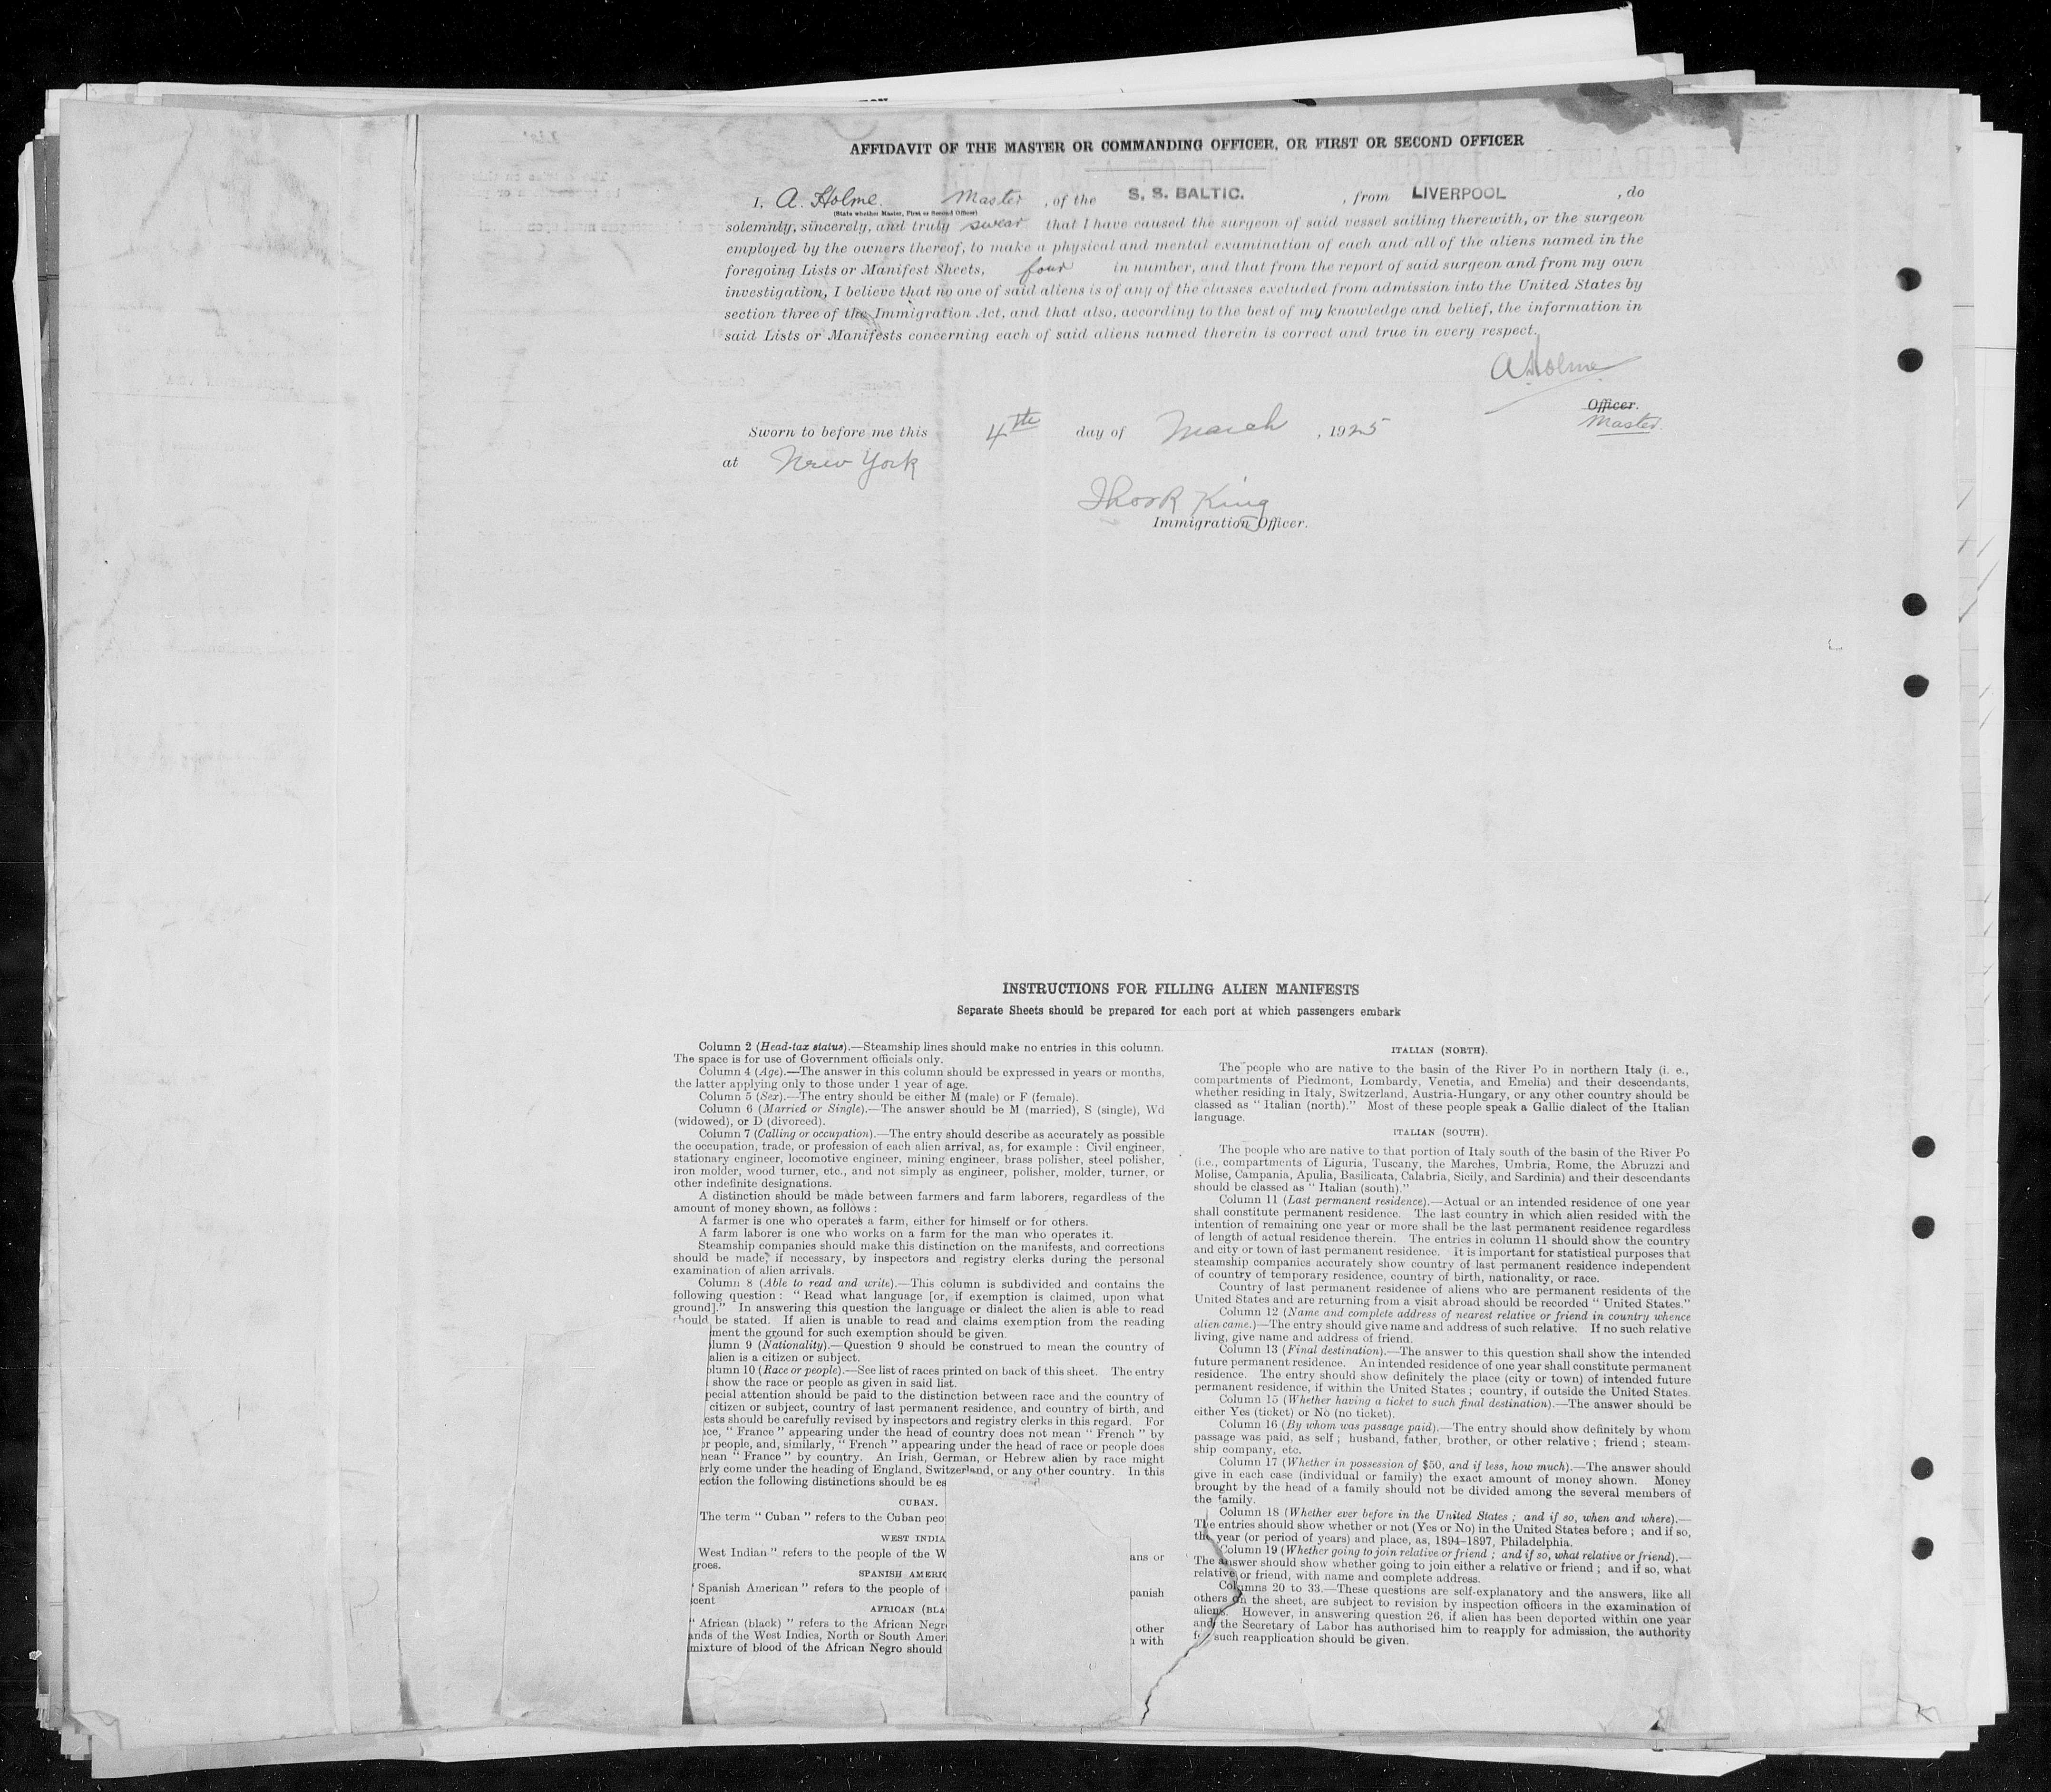 AFFIDAVIT OF THE MASTER OR COMMANDING OFFICER, OR FIRST OR SECOND OFFICER
I, A. Holme. Master, of the S. S. BALTIC. , from LIVERPOOL , do
(State whether Master, First or Second Officer)
solemnly, sincerely, and truly swear that I have caused the surgeon of said vessel sailing therewith, or the surgeon
employed by the owners thereof, to make a physical and mental examination of each and all of the aliens named in the
foregoing Lists or Manifest Sheets, four in number, and that from the report of said surgeon and from my own
investigation, I believe that no one of said aliens is of any of the classes excluded from admission into the United States by
section three of the Immigration Act, and that also, according to the best of my knowledge and belief, the information in
said Lists or Manifests concerning each of said aliens named therein is correct and true in every respect.
A Holme
Officer.
Master.
Sworn to before me this 4th day of March , 1925
at New York
King
Immigration Officer.
INSTRUCTIONS FOR FILLING ALIEN MANIFESTS
Separate Sheets should be prepared for each port at which passengers embark
Column 2 (Head-tax status).—Steamship lines should make no entries in this column.
The space is for use of Government officials only.
Column 4 (Age).—The answer in this column should be expressed in years or months,
the latter applying only to those under 1 year of age.
Column 5 (Sex).—The entry should be either M (male) or F (female).
Column 6 (Married or Single).—The answer should be M (married), S (single), Wd
(widowed), or D (divorced).
Column 7 (Calling or occupation).—The entry should describe as accurately as possible
the occupation, trade, or profession of each alien arrival, as, for example : Civil engineer,
stationary engineer, locomotive engineer, mining engineer, brass polisher, steel polisher,
iron molder, wood turner, etc., and not simply as engineer, polisher, molder, turner, or
other indefinite designations.
A distinction should be made between farmers and farm laborers, regardless of the
amount of money shown, as follows :
A farmer is one who operates a farm, either for himself or for others.
A farm laborer is one who works on a farm for the man who operates it.
Steamship companies should make this distinction on the manifests, and corrections
should be made, if necessary, by inspectors and registry clerks during the personal
examination of alien arrivals.
Column 8 (Able to read and write).—This column is subdivided and contains the
following question : " Read what language [or, if exemption is claimed, upon what
ground]." In answering this question the language or dialect the alien is able to read
should be stated. If alien is unable to read and claims exemption from the reading
ment the ground for such exemption should be given.
olumn 9 (Nationality).—Question 9 should be construed to mean the country of
alien is a citizen or subject.
olumn 10 (Race or people).—See list of races printed on back of this sheet. The entry
show the race or people as given in said list.
pecial attention should be paid to the distinction between race and the country of
citizen or subject, country of last permanent residence, and country of birth, and
ests should be carefully revised by inspectors and registry clerks in this regard. For
nce, " France " appearing under the head of country does not mean " French " by
or people, and, similarly, " French " appearing under the head of race or people does
mean " France " by country. An Irish, German, or Hebrew alien by race might
erly come under the heading of England, Switzerland, or any other country. In this
ection the following distinctions should be es
CUBAN.
The term " Cuban " refers to the Cuban peo
WEST INDIA
West Indian " refers to the people of the W ans or
groes.
SPANISH AMERIC
" Spanish American " refers to the people of panish
cent
AFRICAN (BLA
" African (black) " refers to the African Negr other
ands of the West Indies, North or South Amer with
mixture of blood of the African Negro should
ITALIAN (NORTH).
The people who are native to the basin of the River Po in northern Italy (i. e.,
compartments of Piedmont, Lombardy, Venetia, and Emelia) and their descendants,
whether residing in Italy, Switzerland, Austria-Hungary, or any other country should be
classed as " Italian (north)." Most of these people speak a Gallic dialect of the Italian
language.
ITALIAN (SOUTH).
The people who are native to that portion of Italy south of the basin of the River Po
(i.e., compartments of Liguria, Tuscany, the Marches, Umbria, Rome, the Abruzzi and
Molise, Campania, Apulia, Basilicata, Calabria, Sicily, and Sardinia) and their descendants
should be classed as " Italian (south)."
Column 11 (Last permanent residence).—Actual or an intended residence of one year
shall constitute permanent residence. The last country in which alien resided with the
intention of remaining one year or more shall be the last permanent residence regardless
of length of actual residence therein. The entries in column 11 should show the country
and city or town of last permanent residence. It is important for statistical purposes that
steamship companies accurately show country of last permanent residence independent
of country of temporary residence, country of birth, nationality, or race.
Country of last permanent residence of aliens who are permanent residents of the
United States and are returning from a visit abroad should be recorded " United States."
Column 12 (Name and complete address of nearest relative or friend in country whence
alien came.)—The entry should give name and address of such relative. If no such relative
living, give name and address of friend.
Column 13 (Final destination).—The answer to this question shall show the intended
future permanent residence. An intended residence of one year shall constitute permanent
residence. The entry should show definitely the place (city or town) of intended future
permanent residence, if within the United States ; country, if outside the United States.
Column 15 (Whether having a ticket to such final destination).—The answer should be
either Yes (ticket) or No (no ticket).
Column 16 (By whom was passage paid).—The entry should show definitely by whom
passage was paid, as self ; husband, father, brother, or other relative ; friend ; steam-
ship company, etc.
Column 17 (Whether in possession of $50, and if less, how much).—The answer should
give in each case (individual or family) the exact amount of money shown. Money
brought by the head of a family should not be divided among the several members of
the family.
Column 18 (Whether ever before in the United States ; and if so, when and where).—
The entries should show whether or not (Yes or No) in the United States before ; and if so,
the year (or period of years) and place, as, 1894–1897, Philadelphia.
Column 19 (Whether going to join relative or friend ; and if so, what relative or friend).—
The answer should show whether going to join either a relative or friend ; and if so, what
relative or friend, with name and complete address.
Columns 20 to 33.—These questions are self-explanatory and the answers, like all
others on the sheet, are subject to revision by inspection officers in the examination of
aliens. However, in answering question 26, if alien has been deported within one year
and the Secretary of Labor has authorised him to reapply for admission, the authority
for such reapplication should be given.